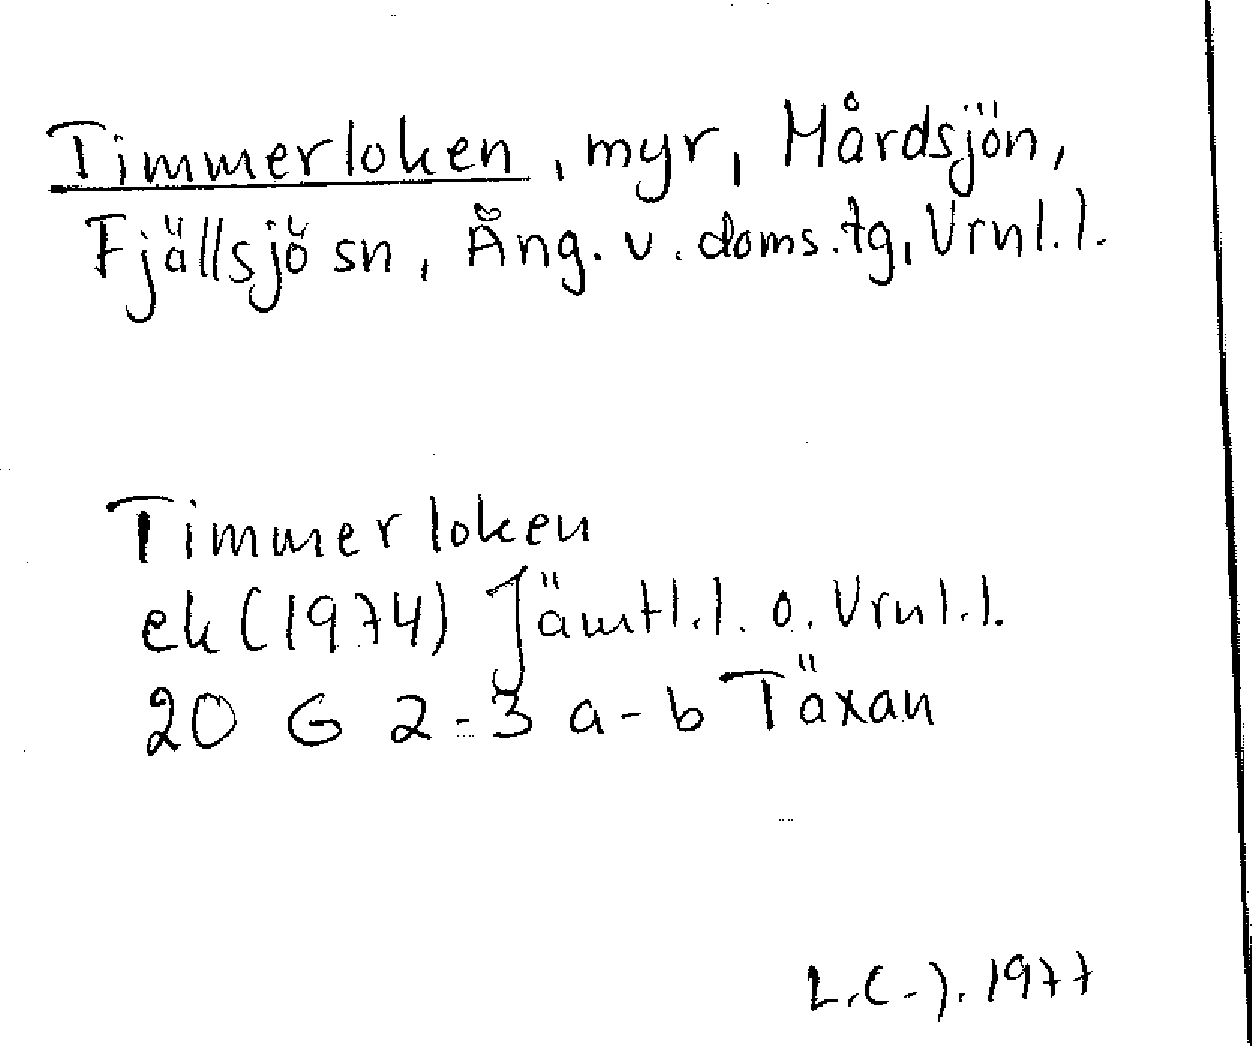 Timmerloken, myr, Hårdsjön,
Fjällsjö sn, Ång. v. doms.tg, Vrnl.l.
Timmerloken
ek (1974) Jämtl.l. o. Vrnl.l.
20 G 2-3 a-b Täxan
L.C-J. 1977